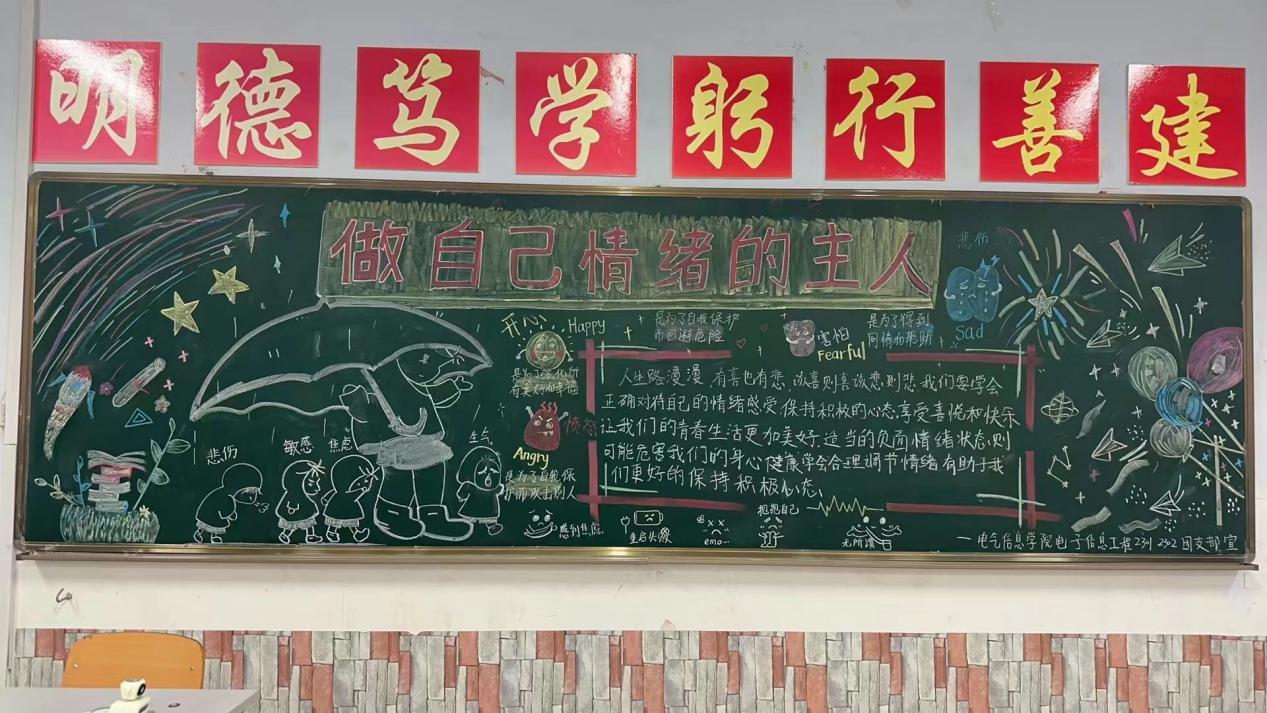 明德笃学躬行善建
做自己情绪的主人
悲伤
Sad
开心
Happy
是为了自我保护
而回避危险
害怕
Fearful
是为了得到
同情和帮助
有美好和幸福
愤怒
Angry
是为了自我保
护而攻击别人
人生路漫漫,有喜也有悲,该喜则喜,该悲则悲,我们要学会
正确对待自己的情绪感受,保持积极的心态,享受喜悦和快乐
让我们的青春生活更加美好,适当的负面情绪状态,则
可能危害我们的身心健康,学会合理调节情绪有助于我
们更好的保持积极心态、
悲伤
敏感
焦虑
生气
感到焦虑
重启头像
emo...
抱抱自己
无所谓
一电气信息学院电子信息工程2341 2342团支部宣